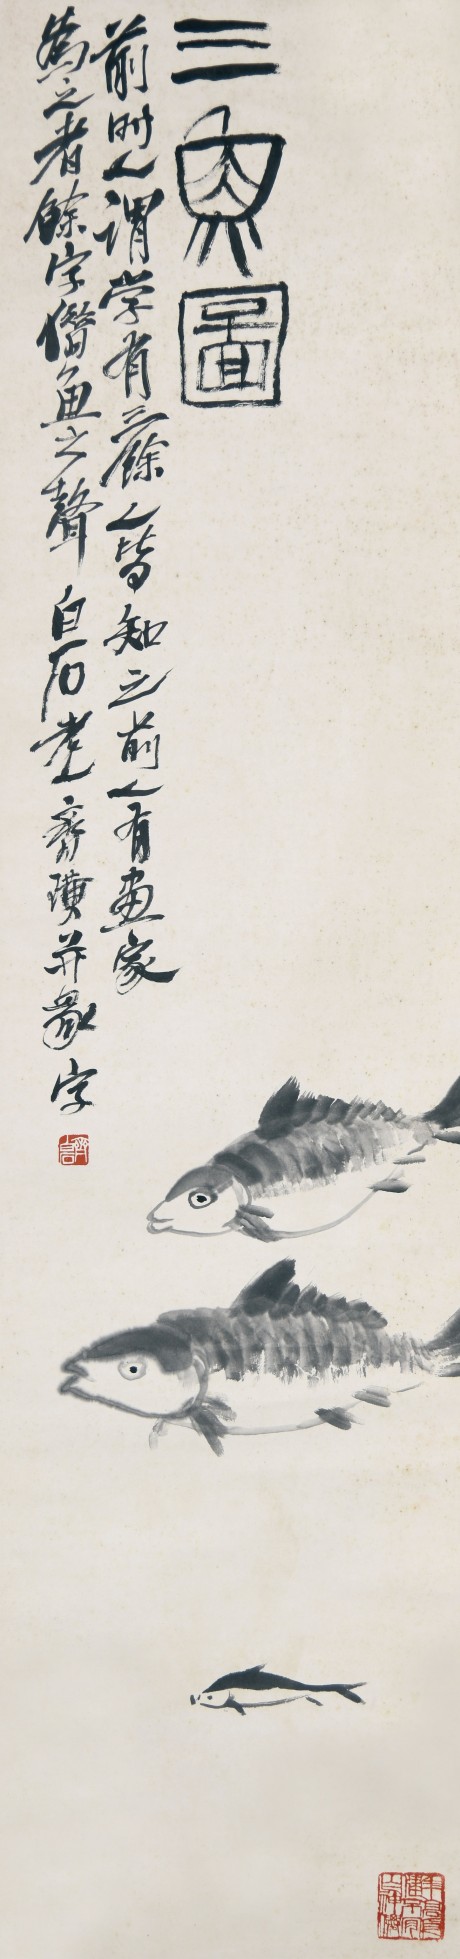 三魚圖
前朝人謂学有三餘人皆知之前人有畫家
為之者餘字借魚之聲 白石老人齊璜并篆字